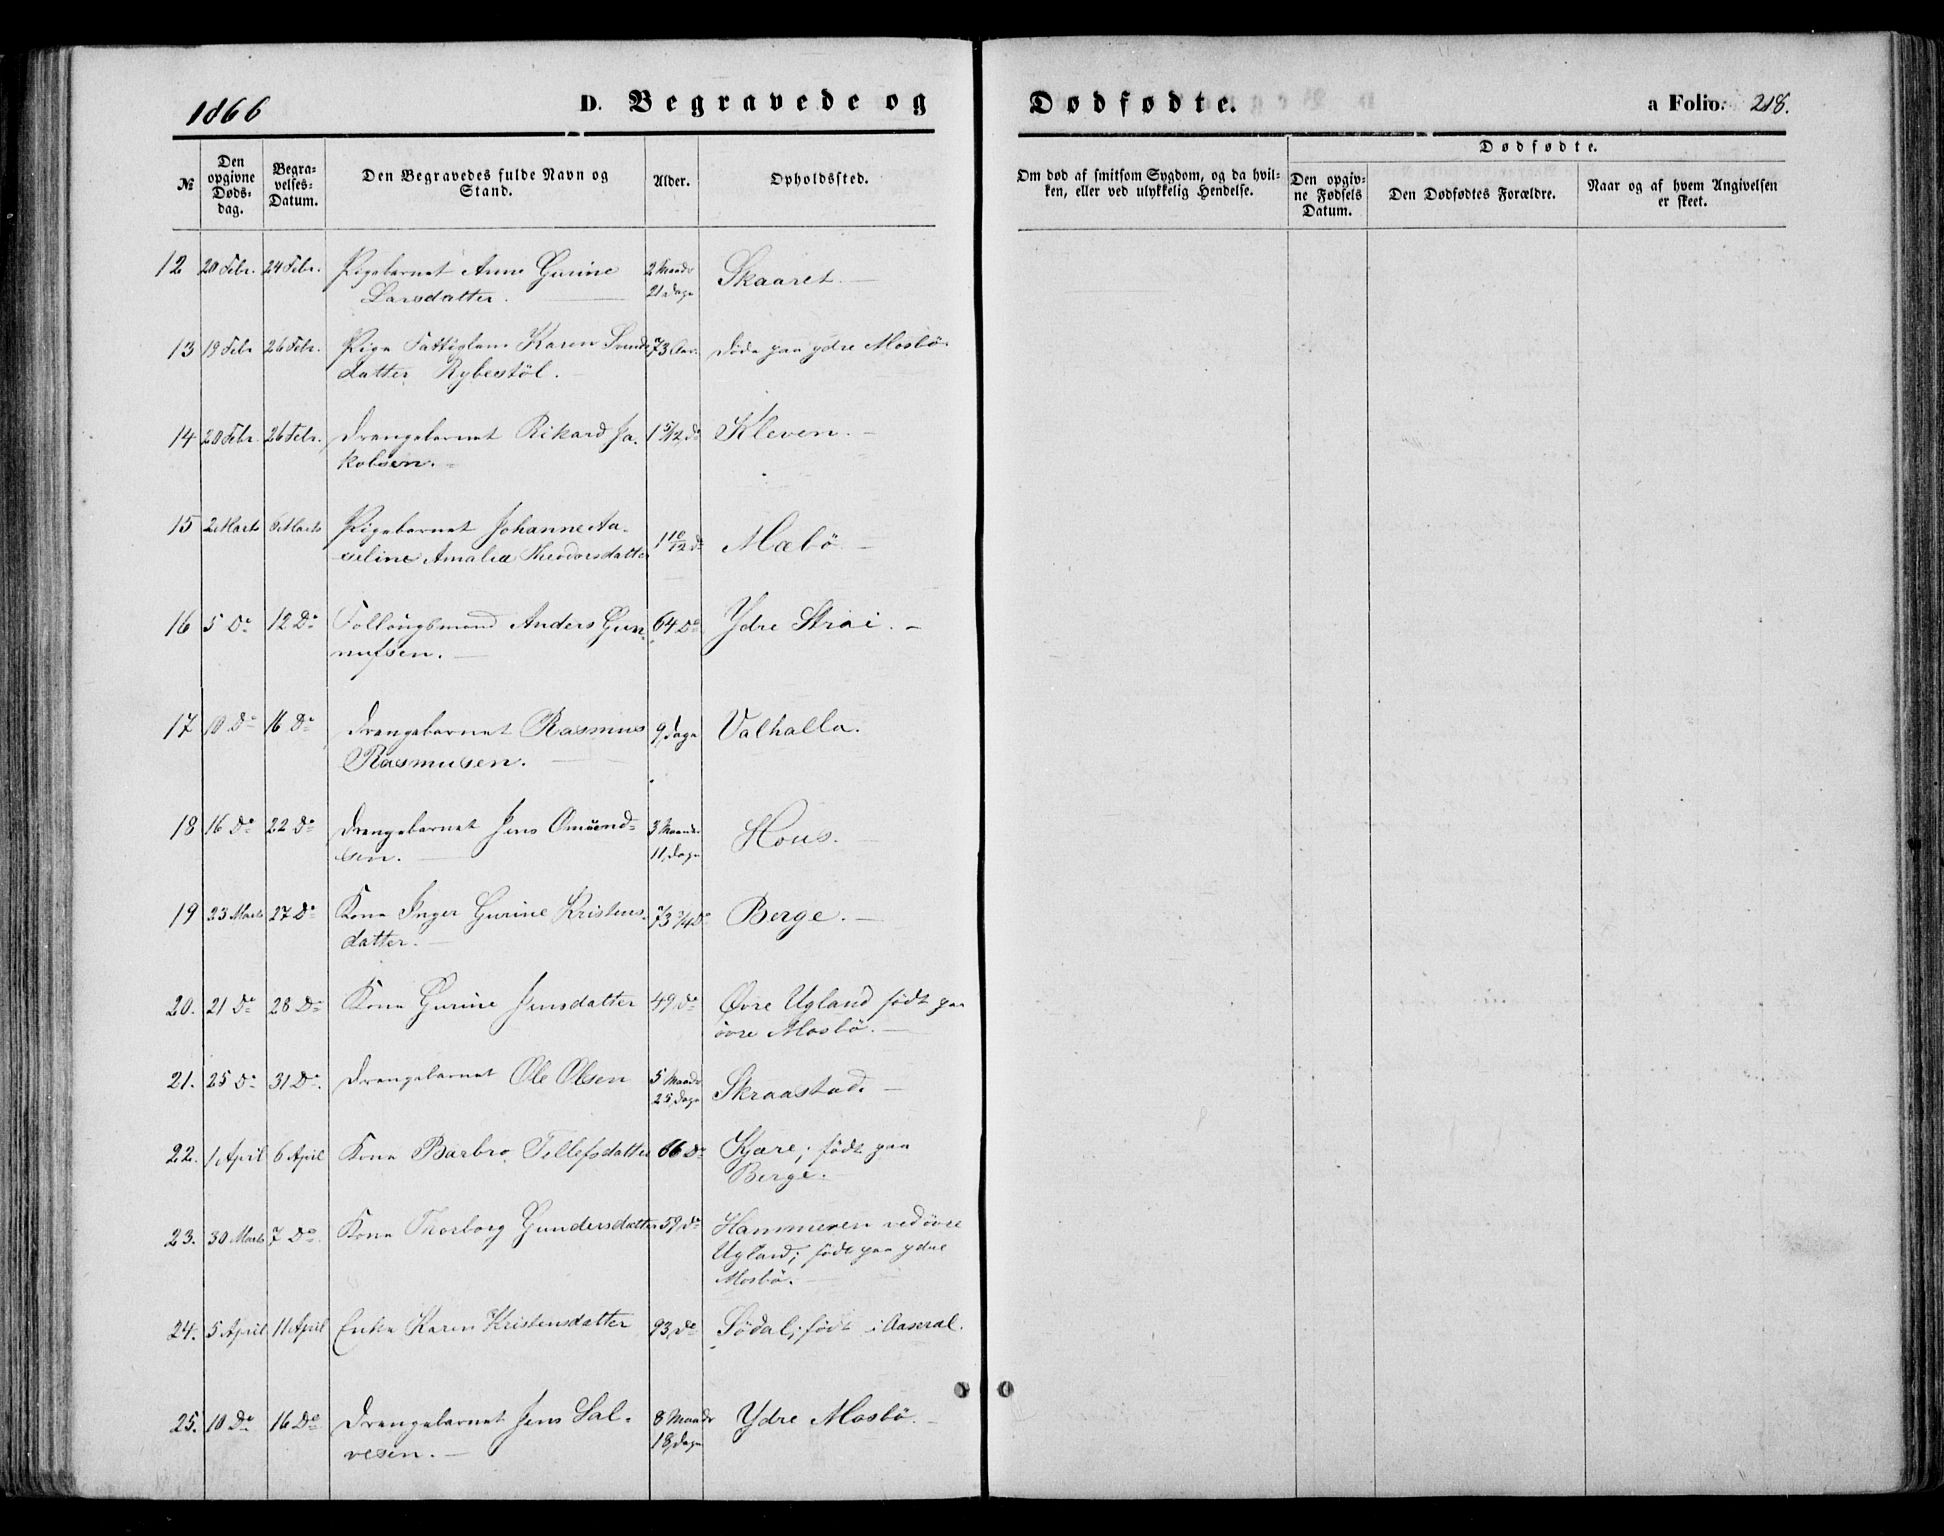 1866
D. Begravede og
Dødfødte.
a Folio. 218.
№
Den opgivne Døds-dag.
Begra-velses-Datum.
Den Begravedes fulde Navn og Stand.
Alder.
Opholdssted.
Om død af smitsom Sygdom, og da hvil-ken, eller ved ulykkelig Hendelse.
Dødfødte.
Den opgiv-ne Fødsels Datum.
Den Dødfødtes Forældre.
Naar og af hvem Angivelsen er skeet.
12 20 Febr. 24 Febr. Pigebarnet Anne Gurine 2 Maandr Skaaret. –
Larsdatter. 21 Dage
13 19 Febr 26 Febr. Pige Fattiglem Karen Svends 73 Aar. døde paa ydre Mosbö.
datter Rybestöl.
14 20 Febr. 26 Febr. Drengebarnet Rikard Ja- 1 5/12 Do Kleven. –
kobsen. –
15 2 Marts Marts Pigebarnet Johanne Aa- 1 10/12 Do Mæbö –
seline Amalia Theodorsdatter
16 5 Do 12 Do Follougsmand Anders Gun- 64 Do Ydre Strai. –
nufsen. –
17 10 Do 16 Do Drengebarnet Rasmus 9 Dage Valhalla.
Rasmusen. –
18 16 Do 22 Do Drengebarnet Jens Omund- 3 Maander Hous. –
sen. – 11 Dage
19 23 Marts 27 Do Kone Inger Gurine Kristens- 73 3/4 Do Berge. –
datter. –
20. 21 Do 28 Do Kone Gurine Jensdatter 49 Do Øvre Ugland född paa
övre Mosbö. –
21. 25 Do 31 Do. Drengebarnet Ole Olsen 5 Maandr Skraastad. –
25 Dage
22. 1 April 6 April Kone Barbro Tellefsdatter 66 Do Kjære; född paa
Berge. –
23. 30 Marts 7 Do. Kone Thorborg Gundersdatter 59 Do Hammeren ved övre
Ugland; född paa ydre
Mosbö. –
24. 5 April 11 April Enke Karen Kristensdatter 93, Do Södal; född i Aaseral.
25. 10 Do 16 Do Drengebarnet Jens Sal- 8 Maandr Ydre Mosbö. –
vesen. – 18, Dage